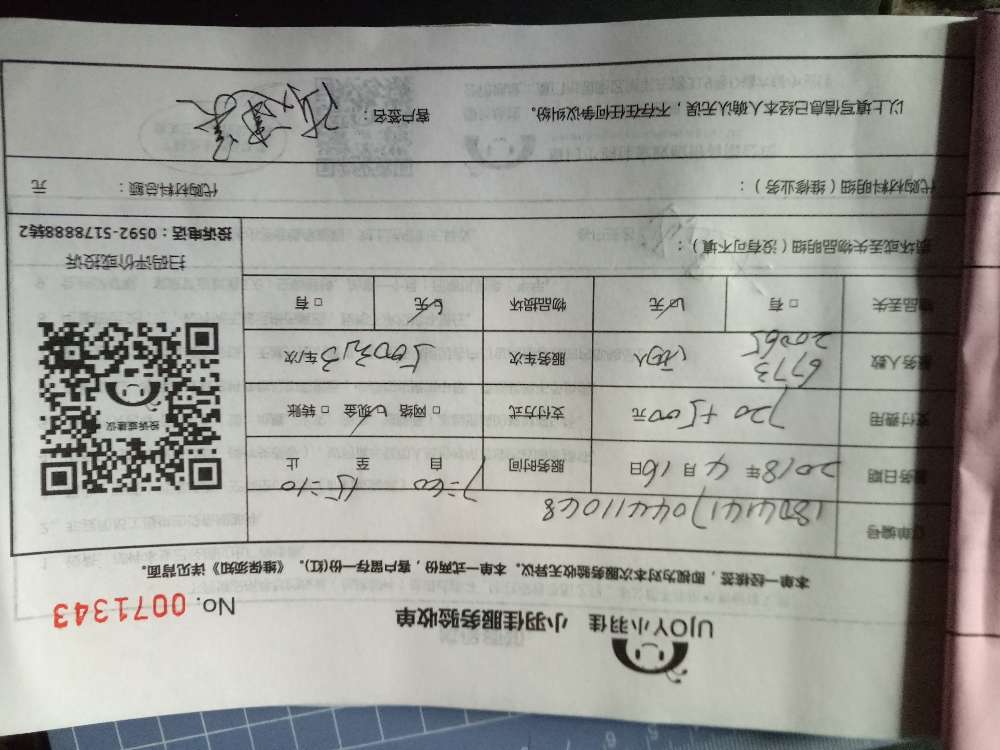 UJOY小羽佳 小羽佳服务验收单
No. 0071343
本单一经核签，即视为对本次服务验收无异议。本单一式两份，客户留存一份(红)。《维保须知》详见背面。
订单编号
服务日期 2018年4月16日 服务时间 自 至 15:10 止
支付费用 720+500元 支付方式 □网络 ☑现金 □转账
服务人数 6773 20065 人 服务车次 车/次
物品丢失 □有 ☑无 物品损坏 □有 ☑无
损坏或丢失物品明细（没有可不填）：
代购材料明细（维修业务）： 代购材料总额： 元
以上填写信息已经本人确认无误，不存在任何争议纠纷。 客户签名：
投诉或建议
扫码评价或投诉
投诉电话：0592-5178888转2